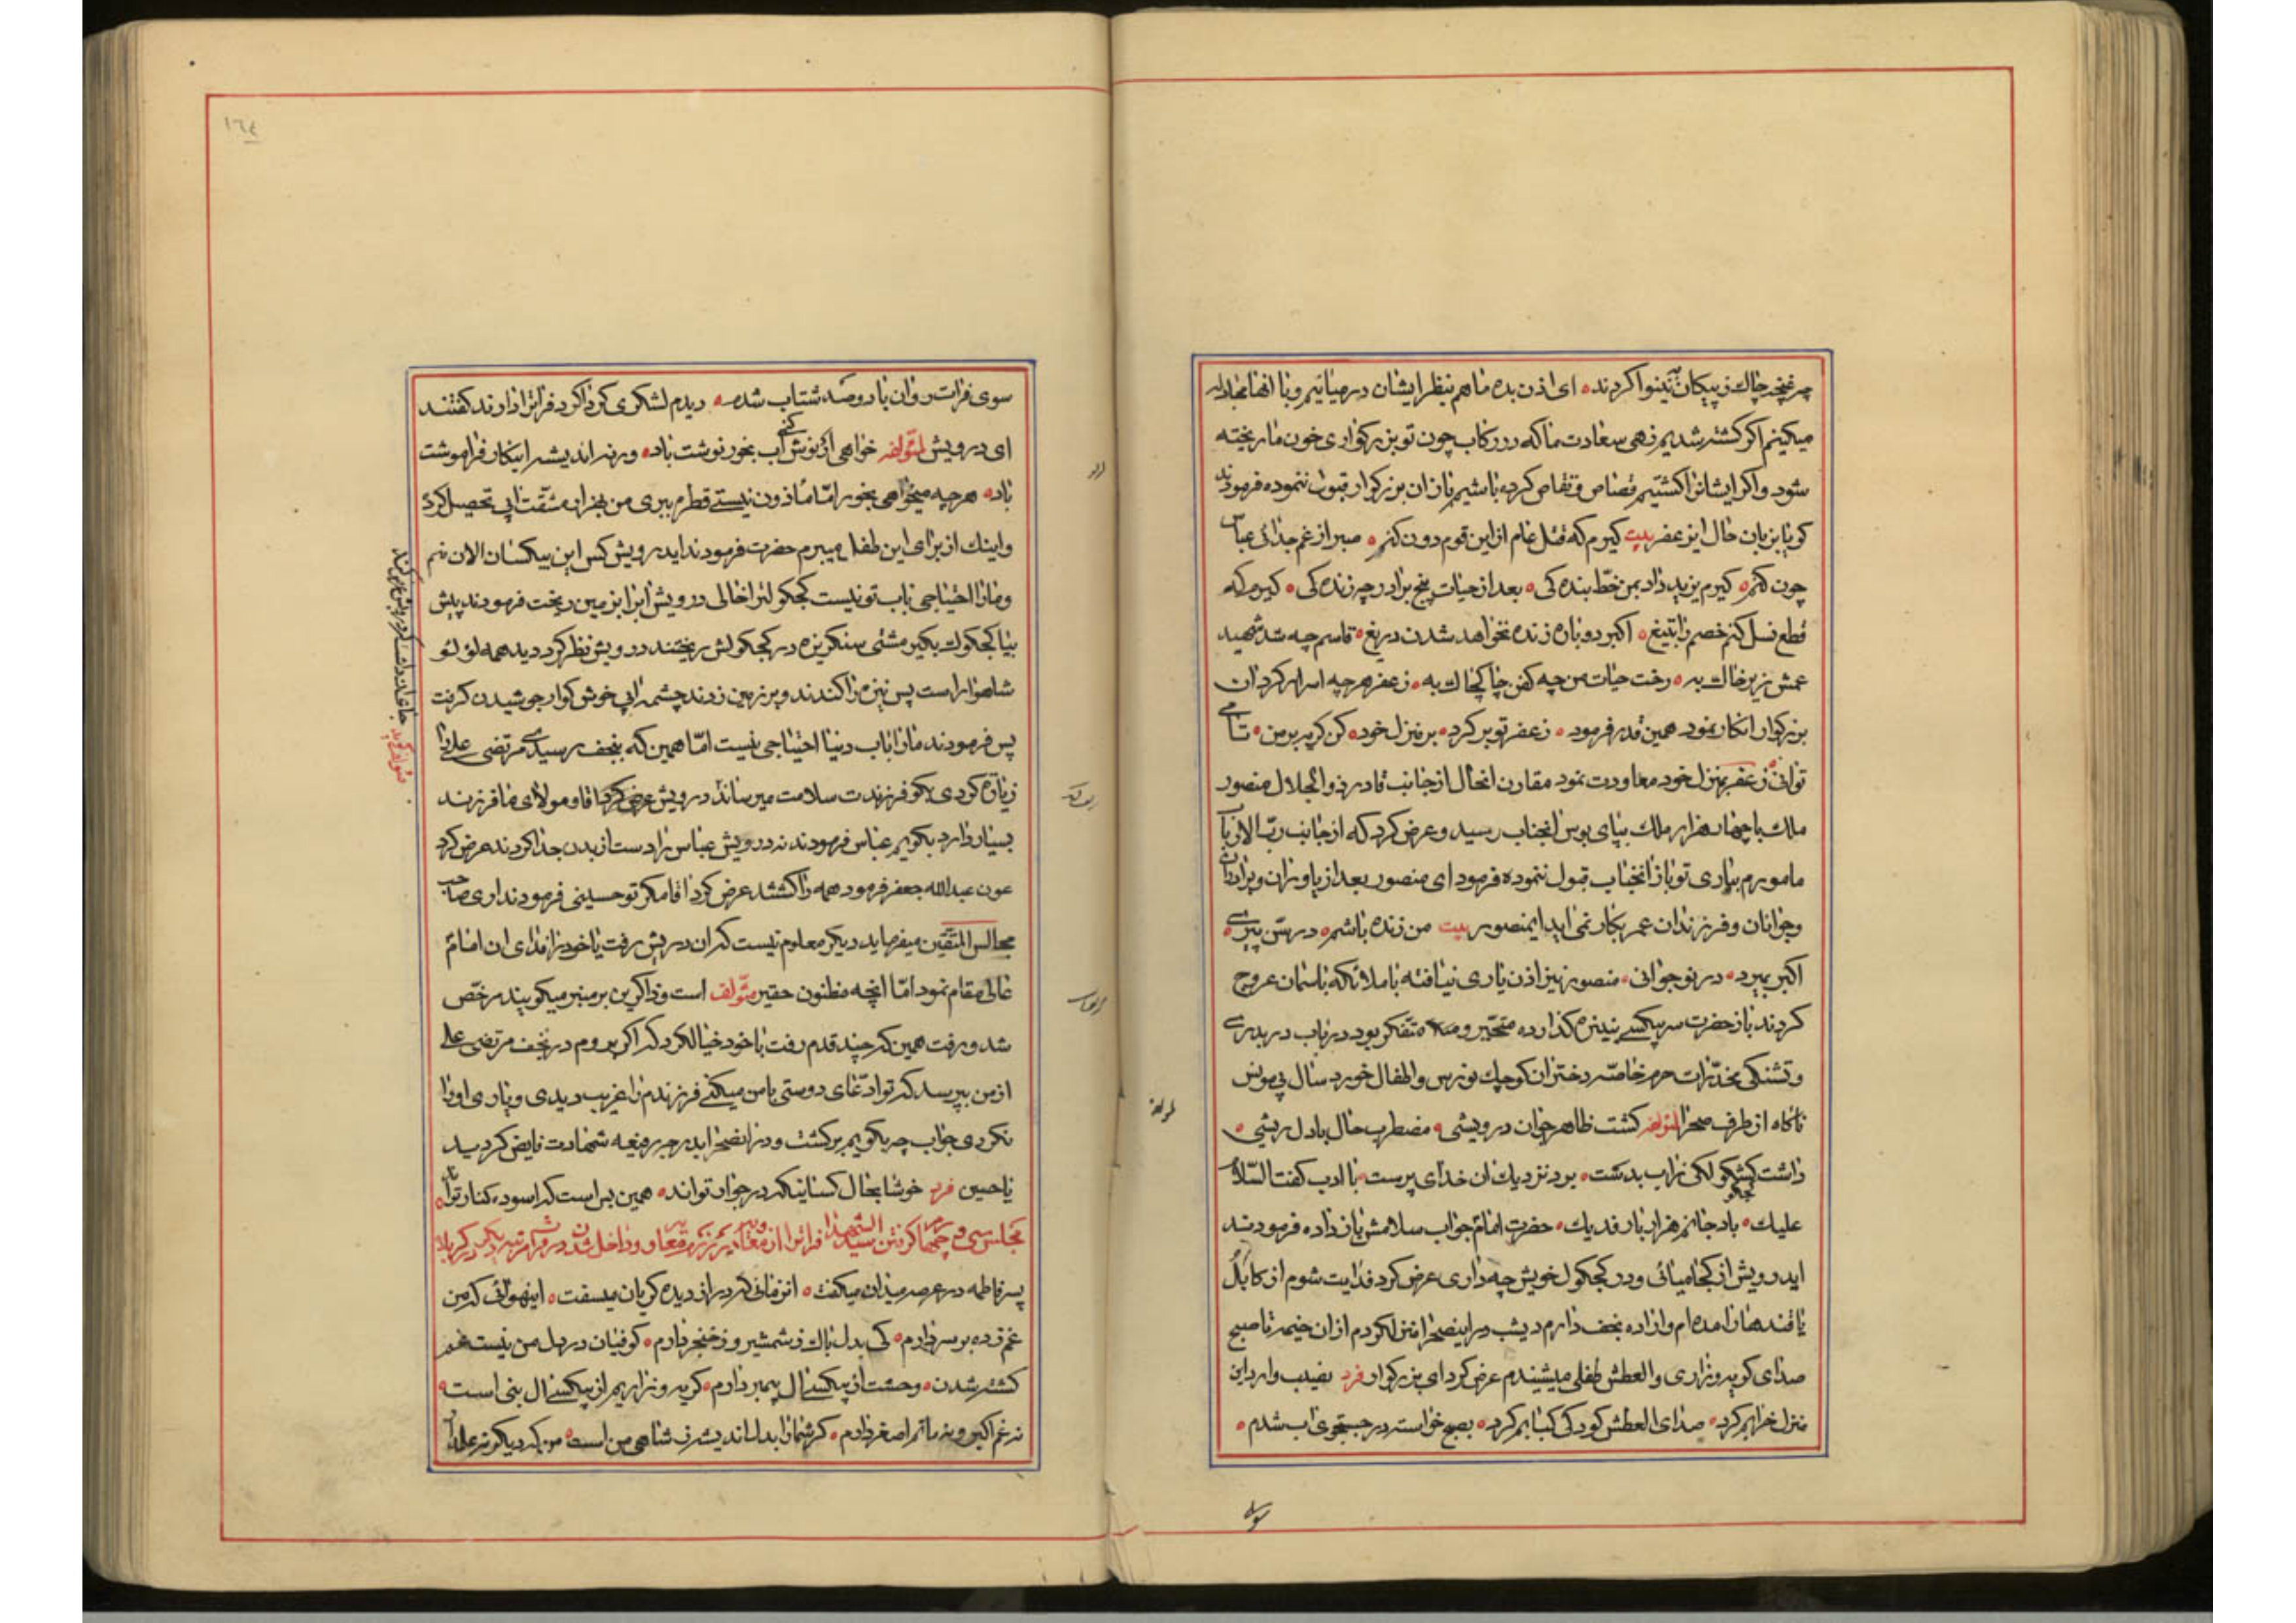 چه غنچه چاك ز پیکان نینوا کردند ای اذن بده ما هم بنظر ایشان در میانیم و با آنها مجادله
میکینم اکر کشته شدیم زهی سعادت ما که در رکاب چون تو بزرکواری خون ما ریخته
شود و اکر ایشانرا کشتیم قصاص و تقاص کرده باشیم بازان بزرکوار قبول ننموده فرمودند
کویا بزبان حال ایزعفر بیت کیرم که قتل عام از این قوم دون کنم صبر از غم جدائی عباس
چون کنم کیرم یزید داد بمن خط بنده کی بعد از حیات پنج برادر چه زنده کی کیرم که
قطع نسل کنم خصم را بتیغ اکبر دوباره زنده نخواهد شدن دریغ قاسم چه شد شهید
عمش زیر خاك به رخت حیات من چه کفن چاك چاك به زعفر هر چه اسرار کرد ان
بزرکوار انکار نمود همین قدر فرمود زعفر تو بر کرد بر منزل خود کن کریه بر من تا می
توانی زعفر بمنزل خود معاودت نمود مقارن انحال از جانب قادر ذو الجلال منصور
ملك با چهار هزار ملك بپای بوس انجناب رسید و عرض کرد که از جانب رب الارباب
مامورم بیاری تو باز انجناب قبول ننموده فرمود ای منصور بعد از یاوران و برادران
وجوانان و فرزندان عمر بکار نمی اید ایمنصور بیت من زنده باشم در سن پیری
اکبر بمیرد در نوجوانی منصور نیز اذن یاری نیافته با ملائکه باسمان عروج
کردند باز حضرت سر بیکسی بنیزه کذارده متحیر و متفکر بود در باب در بدری
و تشنکی مخدرات حرم خاصه دختران کوچك نورس و اطفال خورد سال بی مونس
ناکاه از طرف صحرا لمؤلفه کشت ظاهر جوان درویشی مضطرب حال با دل ریشی
داشت کشکولکی زاب بدست بود نزدیك ان خدای پرست با ادب کفت السلام
علیك باد جانم هزار بار فدیك حضرت امام جواب سلامش باز داده فرمودند
ایدرویش از کجا میائی و در کجکول خویش چه داری عرض کرد فدایت شوم از کابل
یا قندهار امده ام و اراده نجف دارم دیشب در اینصحرا منزل کردم از ان خیمه تا صبح
صدای کریه و زاری و العطش طفلی میشنیدم عرض کرد ای بزرکوار فرد نصیب وارد این
منزل خرابم کرد صدای العطش کودکی کبابم کرد بصبح خواسته در جستجوی اب شدم
سوی
سوی فرات روان با دوصد شتاب شده دیدم لشکری کرداکرد فراترا دارند کفتند
ای درویش لمؤلفه خواهی ار نوش کنی اب بخور نوشت باد ورنه اندیشه اینکار فراموشت
باد هر چه میخواهی بخور اما ماذون نیستی قطره ببری من بهزار مشقت ابی تحصیل کرده
و اینك از برای این طفل میبرم حضرت فرمودند ایدرویش کس این بیکسان الان منم
و مارا احتیاجی باب تو نیست کجکولترا خالی درویش ابرا بزمین ریخت فرمودند پیش
بیا کجکولت بکیر مشتی سنکریزه در کجکولش ریختند درویش نظر کرد دید همه لؤلؤ
شاهوار است پس نیزه را کندند و بر زمین زدند چشمه ابی خوش کوار جوشیدن کرفت
پس فرمودند مارا باب دنیا احتیاجی نیست اما همین که بنجف رسیدی مرتضی علی را
زیارة کردی بکو فرزندت سلامت میرساند درویش عرض کرد اقا و مولای ما فرزند
بسیار دارد بکویم عباس فرمودند نه درویش عباس را دست از بدن جدا کردند عرض کرد
عون عبدالله جعفر فرمود همه را کشتند عرض کرد اقا مکر تو حسینی فرمودند اری صاحب
مجالس المتقین میفرماید دیکر معلوم نیست که ان درویش رفت یا خود را فدای ان امام
عالی مقام نمود اما انچه مظنون حقیر مؤلف است و ذاکرین بر منبر میکویند مرخص
شد و رفت همین که چند قدم رفت با خود خیال کرد که اکر بروم در نجف مرتضی علی
از من بپرسد که تو ادعای دوستی با من میکنی فرزندم را غریب دیدی و یاری او را
نکردی جواب چه بکویم برکشت و در انصحرا بدرجه رفیعه شهادت فایض کردید
یا حسین فرد خوشا بحال کسانیکه در جوار تواند همین بس است که اسوده کنار تواند
مجلس سی و چهارم کرفتن سید الشهدا فراترا از معاندین
پسر فاطمه در عرصه میدان میکفت انزمانی که در از دیده کریان میسفت اینهوائی که من
غم زده بر سر دارم کی بدل باك ز شمشیر و ز خنجر دارم کوفیان در دل من نیست غم
کشته شدن وحشت از بیکسی ال پیمبر دارم کریه و زاریم از بیکسی ال نبی است
نه غم اکبر و نه ماتم اصغر دارم کر شما را بدل اندیشه ز شاهی من است من که دیکر نه علمدار
١٦٤